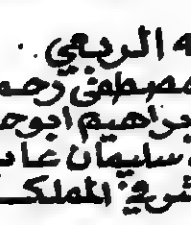 ه الربعي ..
مصطفى رحم
براهيم ابوح
سليمان عا
شرفي المملكـ